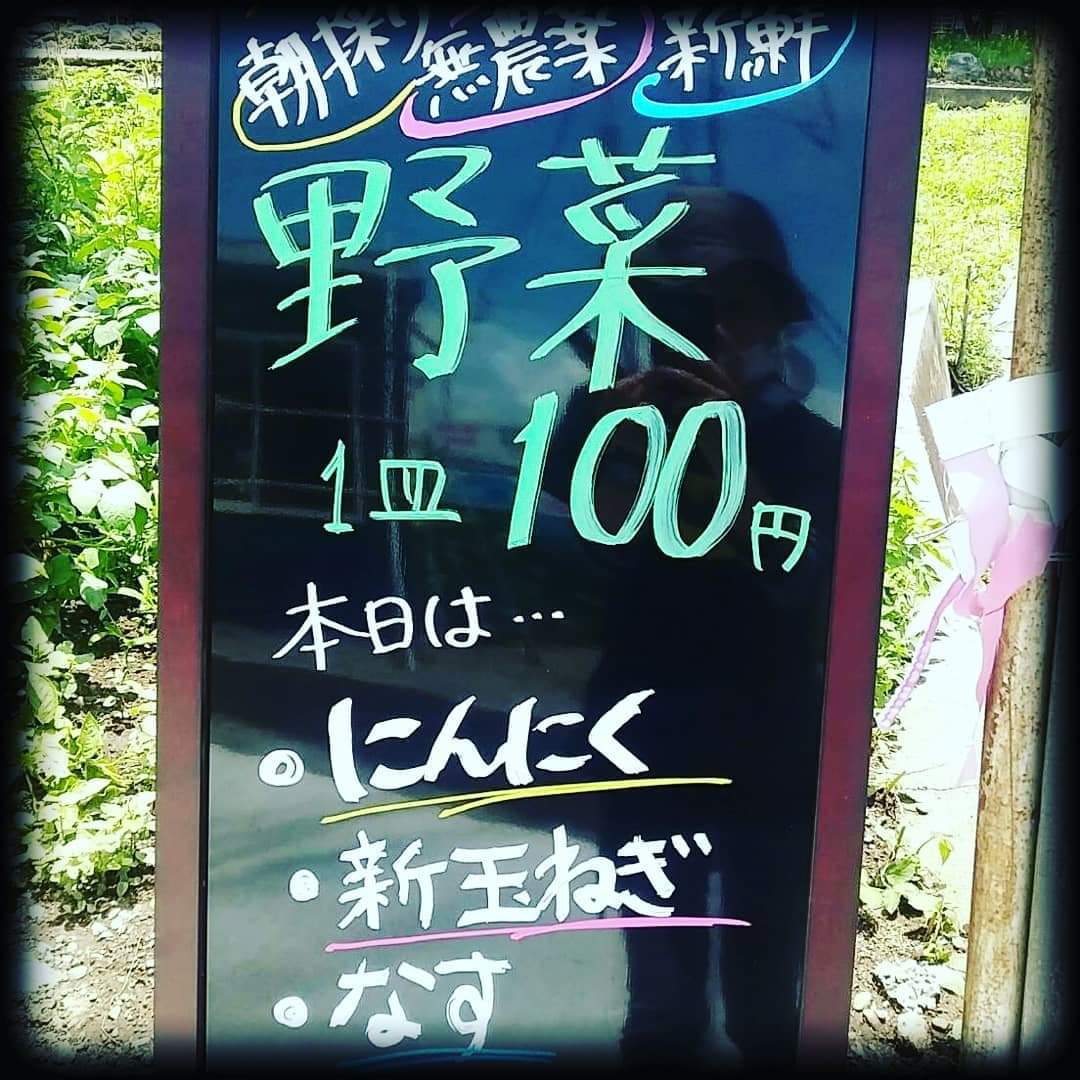 朝採り 無農薬 新鮮
野菜
1皿 100円
本日は…
・にんにく
・新玉ねぎ
・なす